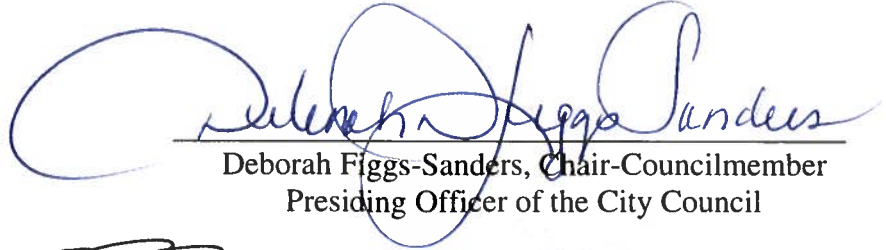 Deborah Figgs Sanders
Deborah Figgs-Sanders, Chair-Councilmember
Presiding Officer of the City Council